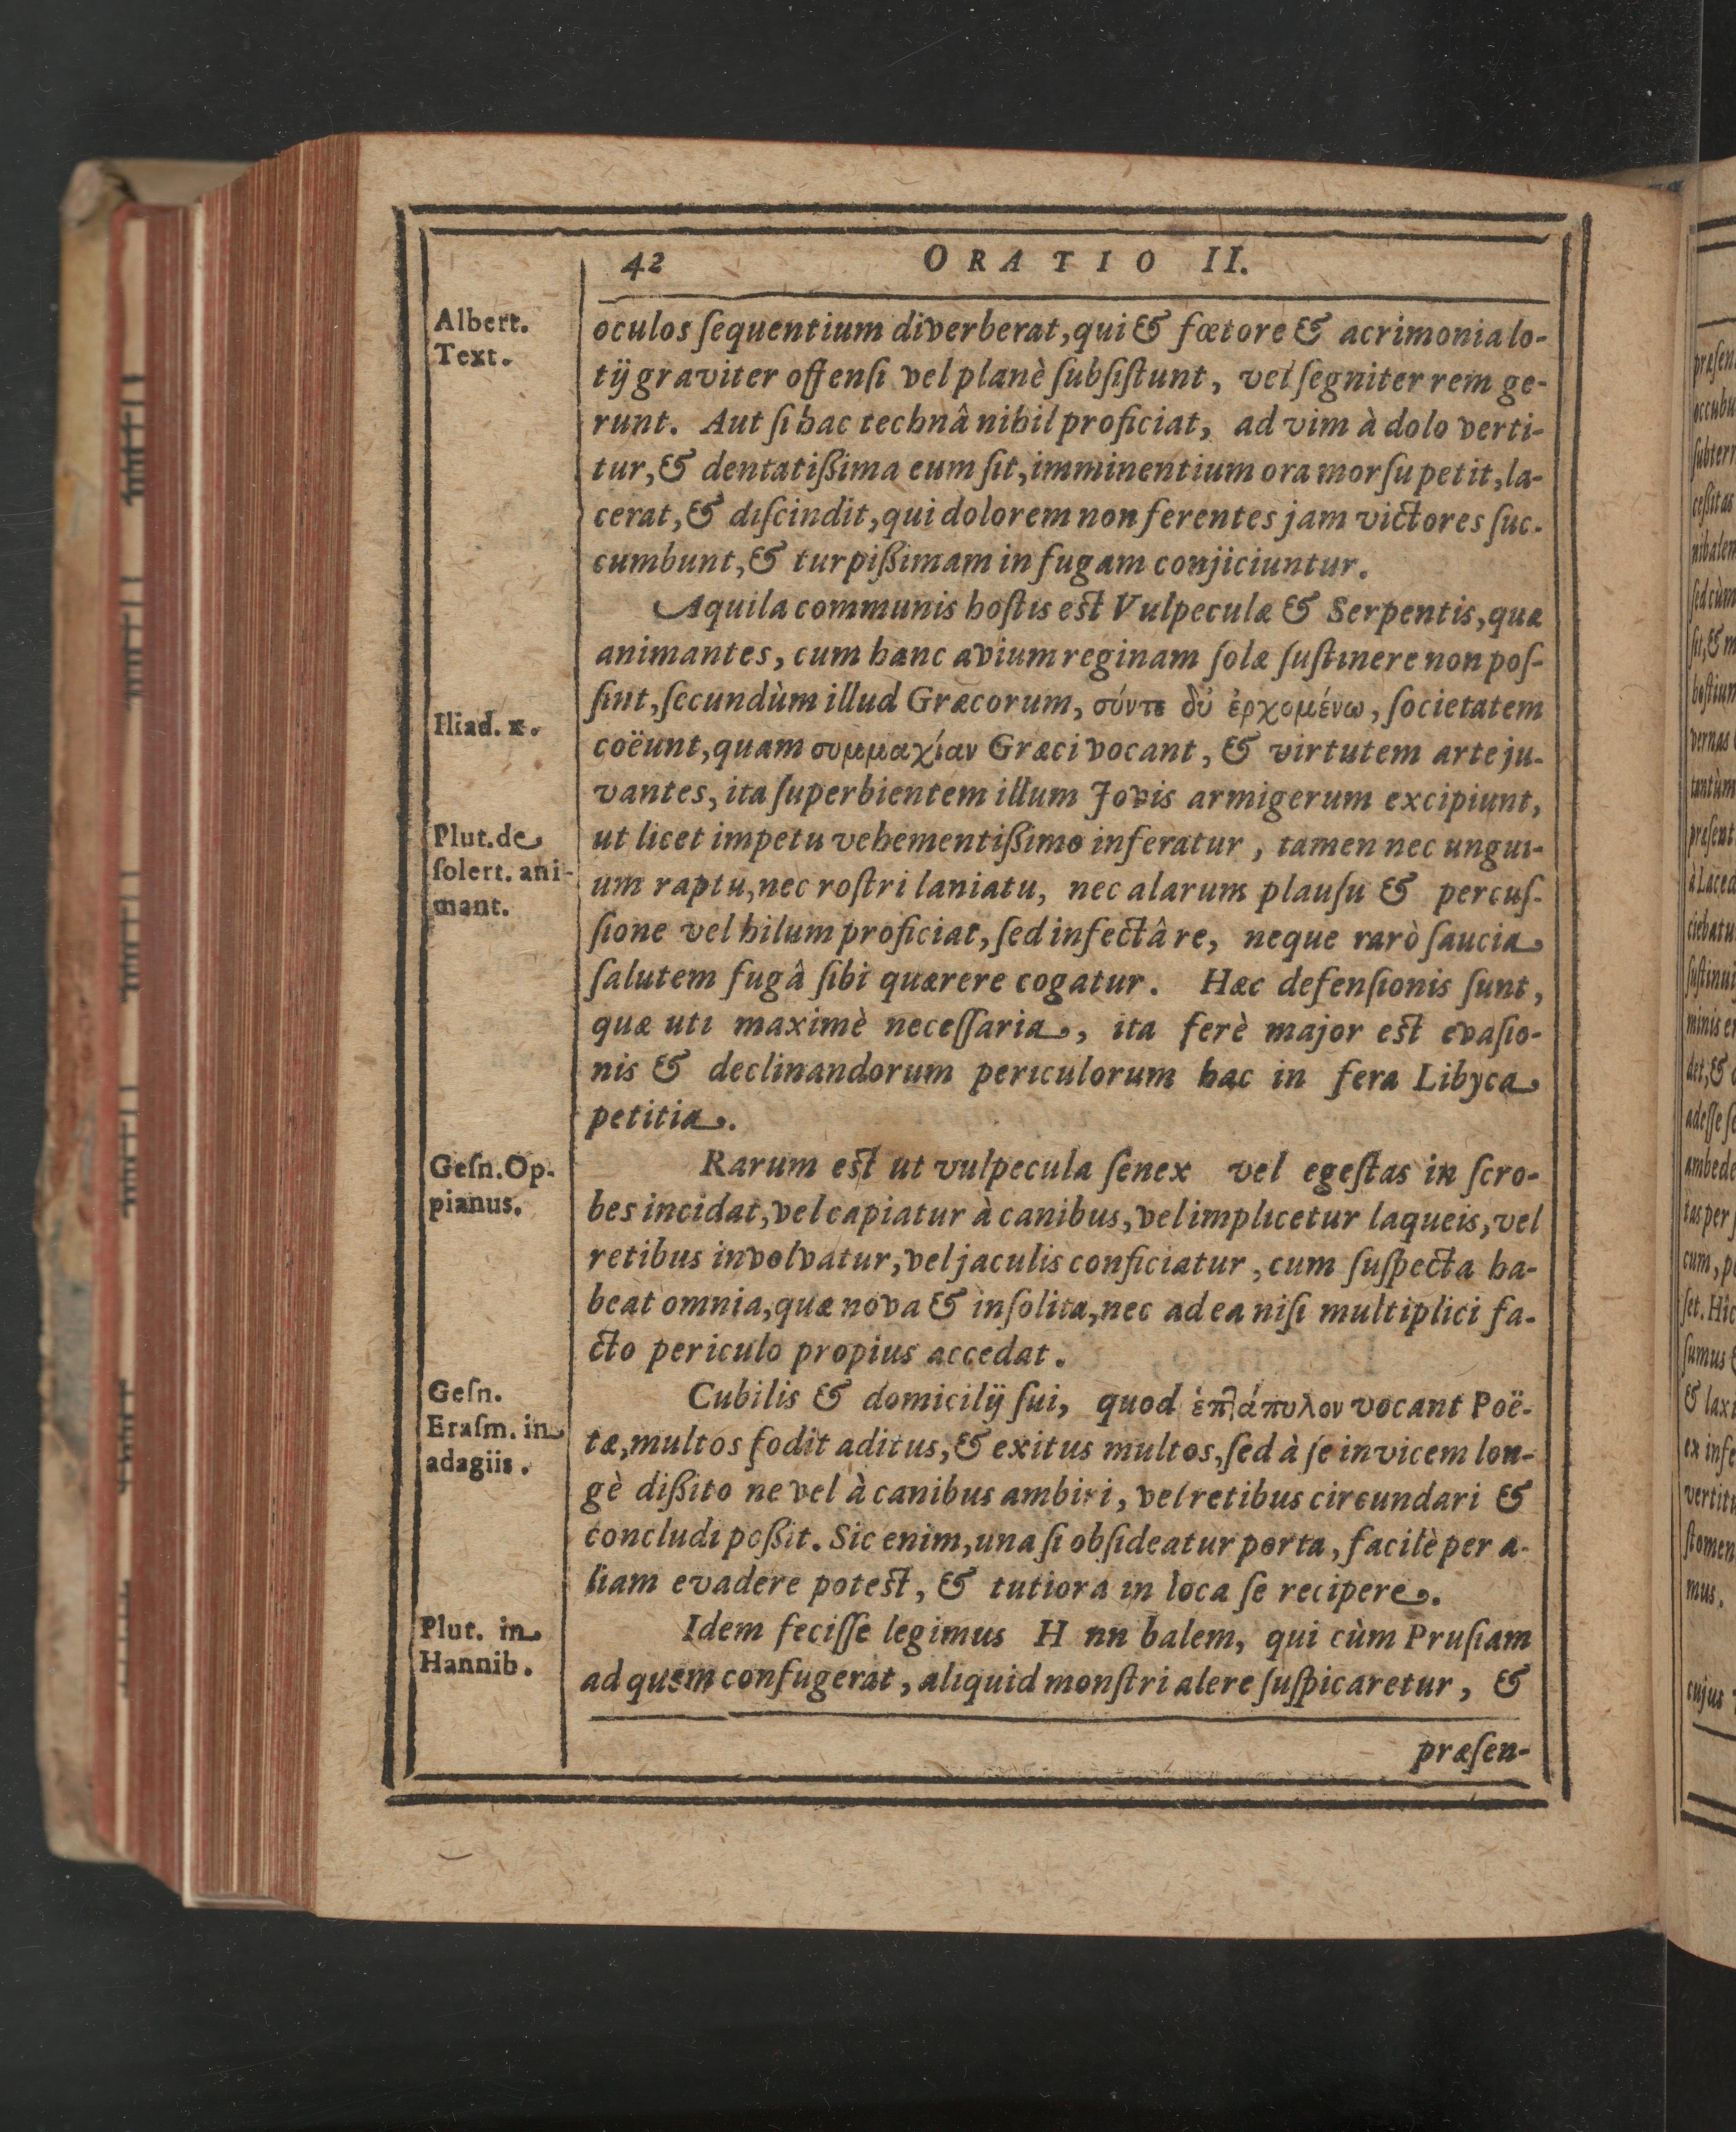 42 ORATIO II.
Albert.
Text.
oculos ſequentium diverberat, qui & fœtore & acrimonia lo-
tij graviter offenſi vel planè ſubſiſtunt, vel ſegniter rem ge-
runt. Aut ſi hac technâ nihil proficiat, ad vim à dolo verti-
tur, & dentatißima cum ſit, imminentium ora morſu petit, la-
cerat, & diſcindit, qui dolorem non ferentes jam victores ſuc-
cumbunt, & turpißimam in fugam conjiciuntur.
Aquila communis hoſtis eſt Vulpeculæ & Serpentis, quæ
animantes, cum hanc avium reginam ſolæ ſuſtinere non poſ-
ſint, ſecundùm illud Græcorum, σύντε δύ ἐρχομένω, ſocietatem
Iliad. κ.
coëunt, quam συμμαχίαν Græci vocant, & virtutem arte ju-
vantes, ita ſuperbientem illum Jovis armigerum excipiunt,
Plut. de
ſolert. ani-
mant.
ut licet impetu vehementißimo inferatur, tamen nec ungui-
um raptu, nec roſtri laniatu, nec alarum plauſu & percuſ-
ſione vel hilum proficiat, ſed infectâ re, neque rarò ſaucia
ſalutem fugâ ſibi quærere cogatur. Hæc defenſionis ſunt,
quæ uti maximè neceſſaria, ita ferè major eſt evaſio-
nis & declinandorum periculorum hac in fera Libyca
petitia.
Geſn. Op-
pianus.
Rarum eſt ut vulpecula ſenex vel egeſtas in ſcro-
bes incidat, vel capiatur à canibus, vel implicetur laqueis, vel
retibus involvatur, vel jaculis conficiatur, cum ſuſpecta ha-
beat omnia, quæ nova & inſolita, nec ad ea niſi multiplici fa-
cto periculo propius accedat.
Geſn.
Eraſm. in
adagiis.
Cubilis & domicilij ſui, quod ἑπτάπυλον vocant Poë-
tæ, multos fodit aditus, & exitus multos, ſed à ſe invicem lon-
gè dißito ne vel à canibus ambiri, vel retibus circundari &
concludi poßit. Sic enim, una ſi obſideatur porta, facilè per a-
liam evadere poteſt, & tutiora in loca ſe recipere.
Plut. in
Hannib.
Idem feciſſe legimus H nn balem, qui cùm Pruſiam
ad quem confugerat, aliquid monſtri alere ſuſpicaretur, &
præſen-